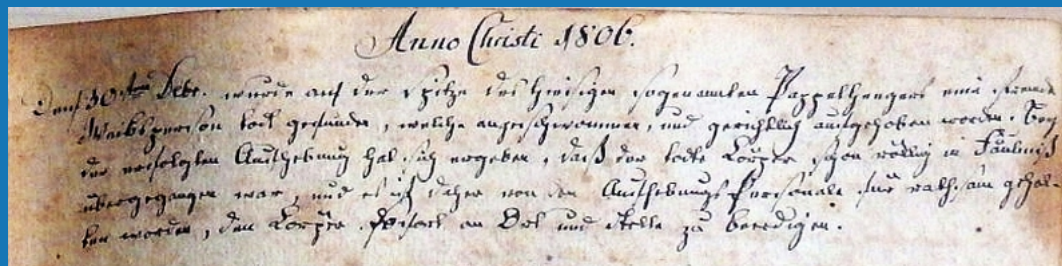 Anno Christi 1806.
Den 30ten Febr. wurde auf der Spitze des hiesigen sogenannten Pappelhengers eine fremde
Weibsperson todt gefunden, welche angeschwommen, und gerichtlich aufgehoben worden. Bey
der erfolgten Aufhebung hat sich ergeben, daß der todte Körper schon völlig in Fäulniß
übergegangen war, und es ist daher von den Aufhebungs Personale für rathsam gehal-
ten worden, den Körper sofort an Ort und Stelle zu beerdigen.